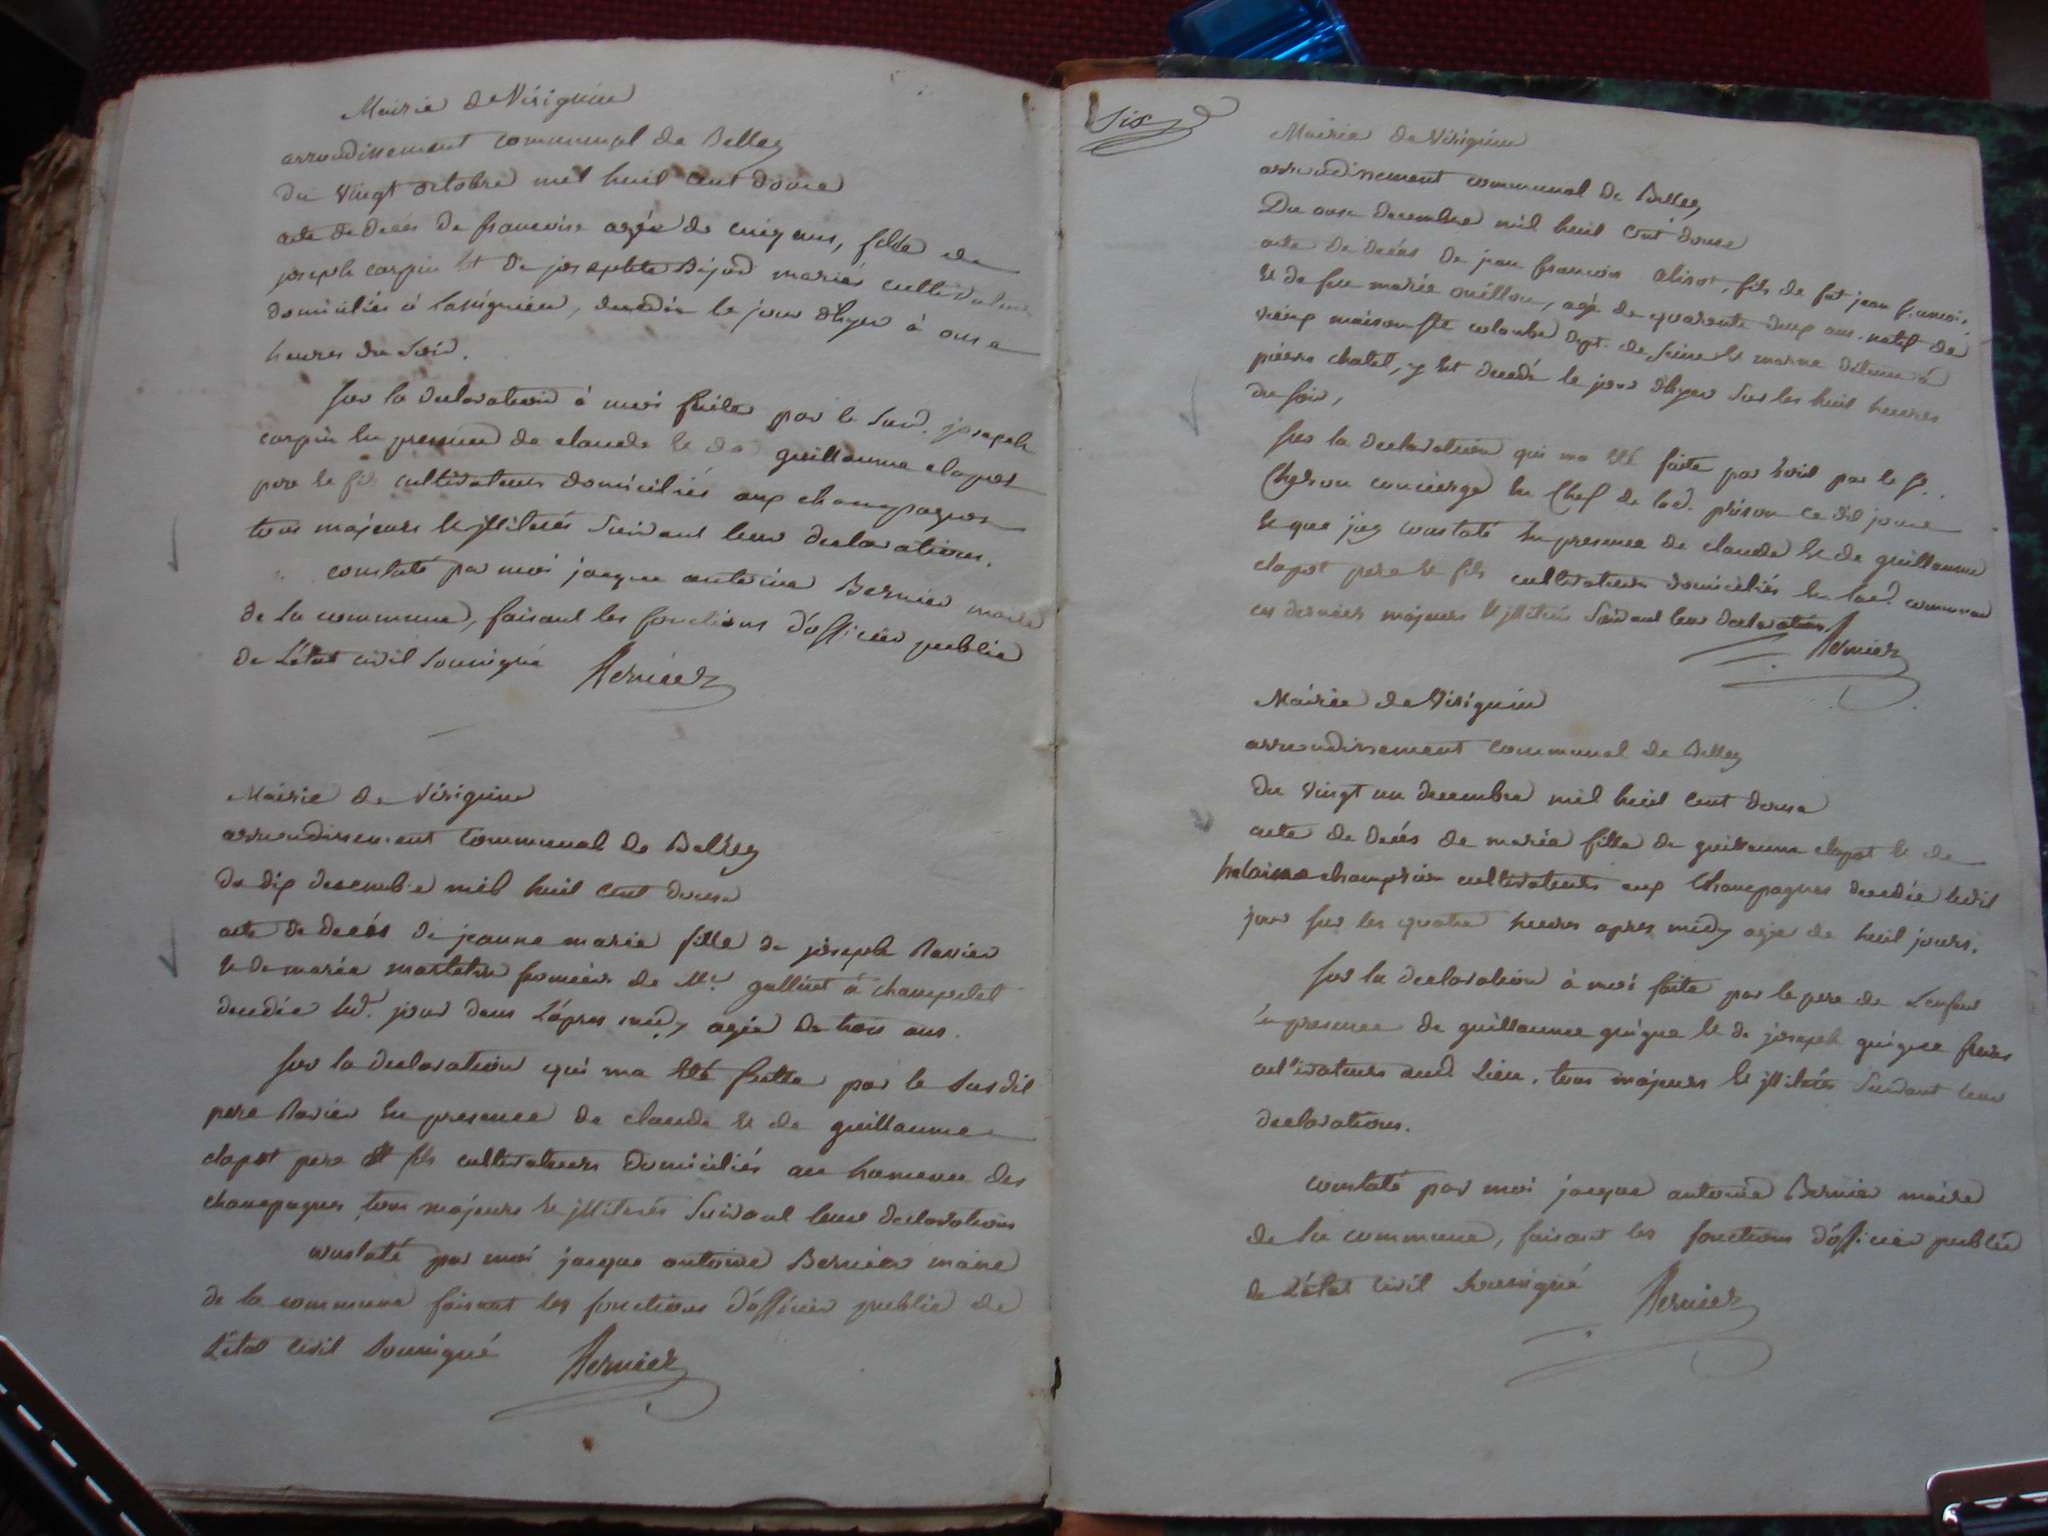 Mairie de Virignin
arrondissement communal de Belley
du vingt octobre mil huit cent douze
acte de decés de francoise agée de cinq ans, fille de
joseph carpin et de josephte Bejod mariés cultivateurs
domiciliés à lassignieu, decedée le jour d'hyer à onze
heures du soir.
sur la declaration à moi faite par le sud. joseph
carpin en presence de claude et de guillaume clapot
pere et fils cultivateurs domiciliés aux champagnes
tous majeurs et illiterés suivant leur declarations.
constaté par moi jacque antoine Bernier maire
de la commune, faisant les fonctions d'officier public
de L'état civil soussigné Bernier
Mairie de Virignin
arrondissement communal de Belley
du dix decembre mil huit cent douze
acte de decés de jeanne marie fille de joseph Ravier
et de marie fermier de Mr. gallinet à champtel
decedée led. jour dans L'apres midy agée de trois ans.
sur la declaration qui ma eté faitte par le susdit
pere Ravier en presence de claude et de guillaume
clapot pere et fils cultivateurs domiciliés au hameau des
champagnes tous majeurs et illiterés suivant leur declarations
constaté par moi jacque antoine Bernier maire
de la commune faisant les fonctions d'officier public de
L'état civil soussigné Bernier
Six
Mairie de Virignin
arrondissement communal de Belley
Du onze decembre mil huit cent douze
acte de decés de jean francois alirot, fils de fut jean francois
et de feu marie ouillon, agé de quarante deux ans. natif de
vieux maison ste colombe dept. de Seine et marne détenu à
pierre chatel, y est decedé le jour d'hyer sur les huit heures
du soir,
sur la declaration qui ma eté faite par ecrit par le sr.
concierge en chef de lad. prison ce dit jour
et que jay constaté en presence de claude et de guillaume
clapot pere et fils cultivateurs domiciliés en lad. commune
ces derniers majeurs et illiterés suivant leur declarations Bernier
Mairie de Virignin
arrondissement communal de Belley
du vingt un decembre mil huit cent douze
acte de decés de marie fille de guillaume clapot et de
cultivateurs aux Champagnes decedée ledit
jour sur les quatre heures apres midy agée de huit jours.
sur la declaration à moi faite par le pere de L'enfant
en presence de guillaume guigue et de joseph guigue freres
cultivateurs aud. Lieu. tous majeurs et illiterés suivant leur
declarations.
constaté par moi jacque antoine Bernier maire
de la commune, faisant les fonctions d'officier public
de L'état civil soussigné Bernier